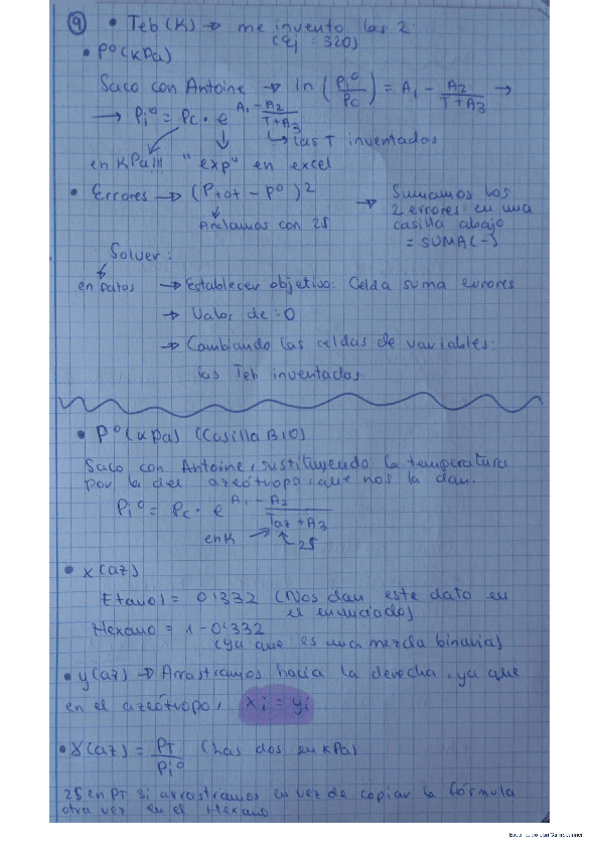 9 • Teb (K) → me invento las 2
(ej: 320)
• Pº (kPa)
Saco con Antoine → ln (Piº/Pc) = A1 - A2/(T+A3) →
→ Piº = Pc · e^(A1 - A2/(T+A3))
↳ las T inventadas
en KPa!!! "exp" en excel
• Errores → (Ptot - Pº)²
Anclamos con 2$
→ Sumamos los
2 errores en una
casilla abajo
= SUMA(-)
Solver:
en Datos → Establecer objetivo: Celda suma errores
→ Valor de: 0
→ Cambiando las celdas de variables:
las Teb inventadas
• Pº (kPa) (Casilla B10)
Saco con Antoine, sustituyendo la temperatura
por la del azeótropo, que nos la dan.
Piº = Pc · e^(A1 - A2/(Taz + A3))
en K → 2$
• x(az)
Etanol = 0'332 (Nos dan este dato en
el enunciado)
Hexano = 1 - 0'332
(ya que es una mezcla binaria)
• y(az) → Arrastramos hacia la derecha, ya que
en el azeótropo, xi = yi
• γ(az) = PT/Piº (Las dos en kPa)
2$ en PT si arrastramos en vez de copiar la fórmula
otra vez en el Hexano